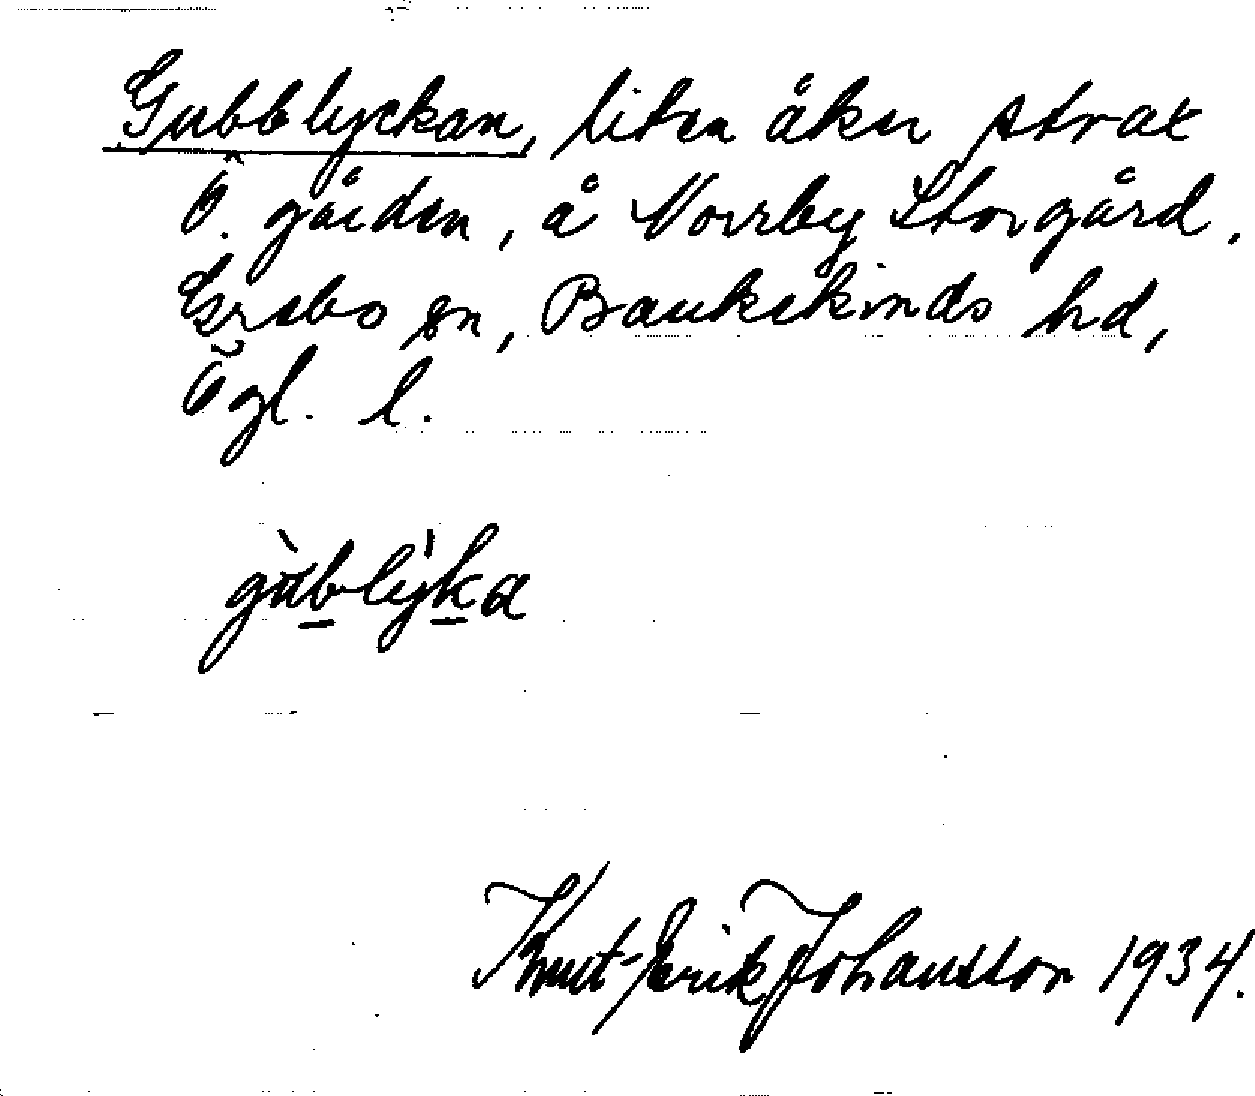 Gubblyckan, liten åker strax
Ö. gården, å Norrby Storgård,
Gersbo sn, Bankekinds hd,
Ögl. l.
gùblýka
Knut-Erik Johansson 1934.